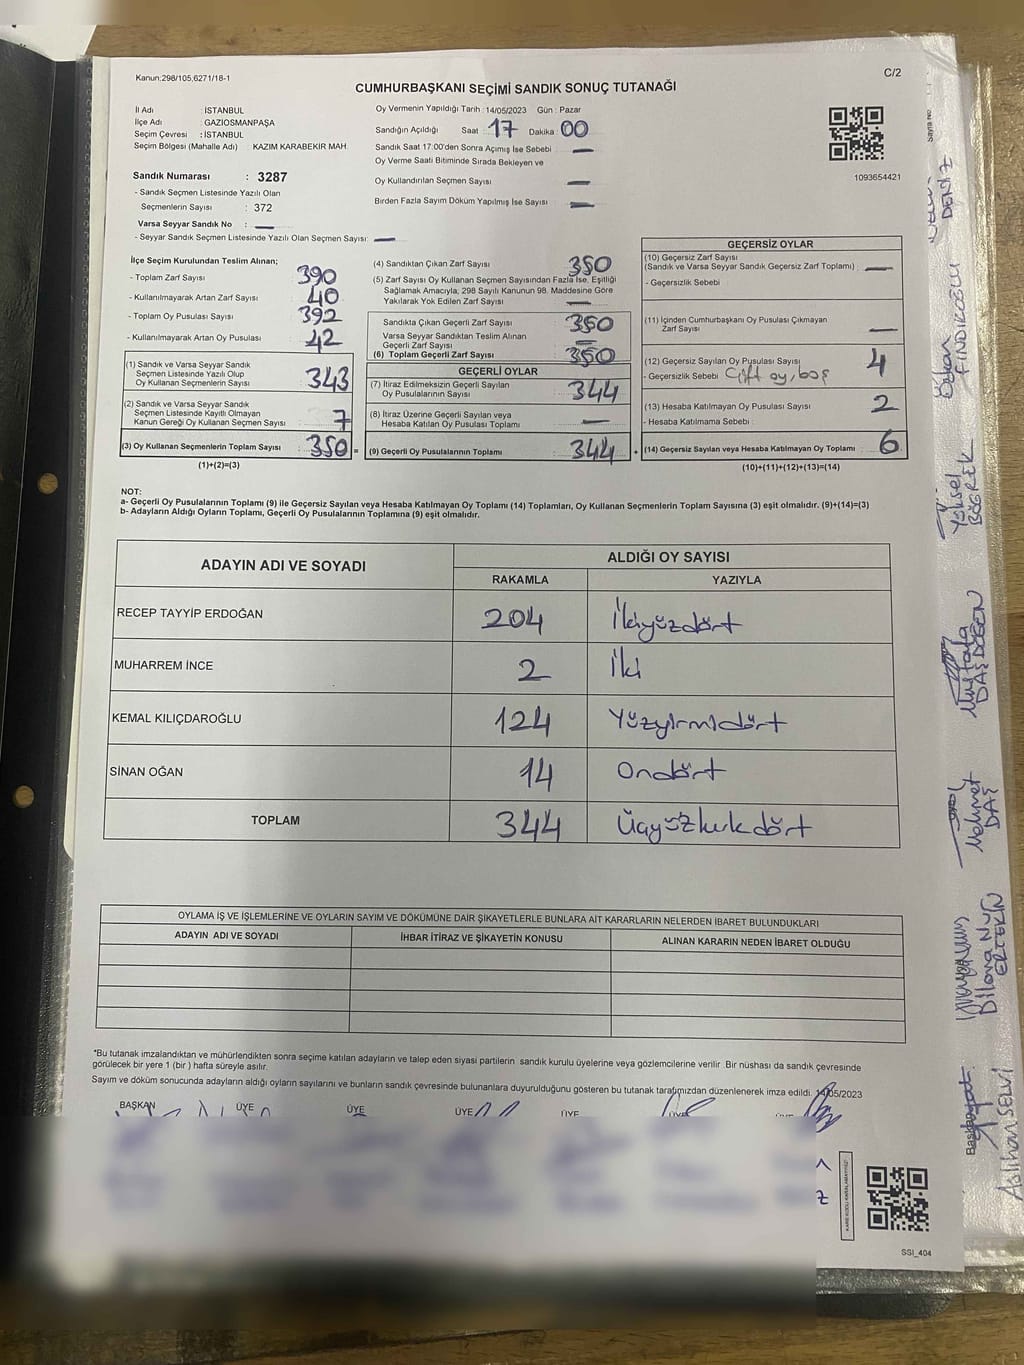 Kanun;298/105,6271/18-1
C/2
CUMHURBAŞKANI SEÇİMİ SANDIK SONUÇ TUTANAĞI
İl Adı : İSTANBUL
İlçe Adı : GAZİOSMANPAŞA
Seçim Çevresi : İSTANBUL
Seçim Bölgesi (Mahalle Adı) : KAZIM KARABEKİR MAH.
Oy Vermenin Yapıldığı Tarih : 14/05/2023 Gün : Pazar
Sandığın Açıldığı Saat : 17 Dakika : 00
Sandık Saat 17:00'den Sonra Açımış İse Sebebi : —
Oy Verme Saati Bitiminde Sırada Bekleyen ve
Oy Kullandırılan Seçmen Sayısı : —
Birden Fazla Sayım Döküm Yapılmış İse Sayısı : —
1093654421
Sandık Numarası : 3287
- Sandık Seçmen Listesinde Yazılı Olan
Seçmenlerin Sayısı : 372
Varsa Seyyar Sandık No : —
- Seyyar Sandık Seçmen Listesinde Yazılı Olan Seçmen Sayısı: —
İlçe Seçim Kurulundan Teslim Alınan;
- Toplam Zarf Sayısı : 390
- Kullanılmayarak Artan Zarf Sayısı : 40
- Toplam Oy Pusulası Sayısı : 392
- Kullanılmayarak Artan Oy Pusulası : 42
(1) Sandık ve Varsa Seyyar Sandık
Seçmen Listesinde Yazılı Olup
Oy Kullanan Seçmenlerin Sayısı : 343
(2) Sandık ve Varsa Seyyar Sandık
Seçmen Listesinde Kayıtlı Olmayan
Kanun Gereği Oy Kullanan Seçmen Sayısı : 7
(3) Oy Kullanan Seçmenlerin Toplam Sayısı : 350 =
(1)+(2)=(3)
(4) Sandıktan Çıkan Zarf Sayısı : 350
(5) Zarf Sayısı Oy Kullanan Seçmen Sayısından Fazla İse, Eşitliği
Sağlamak Amacıyla, 298 Sayılı Kanunun 98. Maddesine Göre
Yakılarak Yok Edilen Zarf Sayısı : —
Sandıkta Çıkan Geçerli Zarf Sayısı : 350
Varsa Seyyar Sandıktan Teslim Alınan
Geçerli Zarf Sayısı : —
(6) Toplam Geçerli Zarf Sayısı : 350
GEÇERLİ OYLAR
(7) İtiraz Edilmeksizin Geçerli Sayılan
Oy Pusulalarının Sayısı : 344
(8) İtiraz Üzerine Geçerli Sayılan veya
Hesaba Katılan Oy Pusulası Toplamı : —
(9) Geçerli Oy Pusulalarının Toplamı : 344 +
GEÇERSİZ OYLAR
(10) Geçersiz Zarf Sayısı
(Sandık ve Varsa Seyyar Sandık Geçersiz Zarf Toplamı) : —
- Geçersizlik Sebebi :
(11) İçinden Cumhurbaşkanı Oy Pusulası Çıkmayan
Zarf Sayısı : —
(12) Geçersiz Sayılan Oy Pusulası Sayısı : 4
- Geçersizlik Sebebi : Çift oy, boş
(13) Hesaba Katılmayan Oy Pusulası Sayısı : 2
- Hesaba Katılmama Sebebi :
(14) Geçersiz Sayılan veya Hesaba Katılmayan Oy Toplamı : 6
(10)+(11)+(12)+(13)=(14)
NOT:
a- Geçerli Oy Pusulalarının Toplamı (9) ile Geçersiz Sayılan veya Hesaba Katılmayan Oy Toplamı (14) Toplamları, Oy Kullanan Seçmenlerin Toplam Sayısına (3) eşit olmalıdır. (9)+(14)=(3)
b- Adayların Aldığı Oyların Toplamı, Geçerli Oy Pusulalarının Toplamına (9) eşit olmalıdır.
ADAYIN ADI VE SOYADI ALDIĞI OY SAYISI
RAKAMLA YAZIYLA
RECEP TAYYİP ERDOĞAN 204 İkiyüzdört
MUHARREM İNCE 2 İki
KEMAL KILIÇDAROĞLU 124 Yüzyirmidört
SİNAN OĞAN 14 Ondört
TOPLAM 344 Üçyüzkırkdört
OYLAMA İŞ VE İŞLEMLERİNE VE OYLARIN SAYIM VE DÖKÜMÜNE DAİR ŞİKAYETLERLE BUNLARA AİT KARARLARIN NELERDEN İBARET BULUNDUKLARI
ADAYIN ADI VE SOYADI İHBAR İTİRAZ VE ŞİKAYETİN KONUSU ALINAN KARARIN NEDEN İBARET OLDUĞU
*Bu tutanak imzalandıktan ve mühürlendikten sonra seçime katılan adayların ve talep eden siyasi partilerin sandık kurulu üyelerine veya gözlemcilerine verilir. Bir nüshası da sandık çevresinde
görülecek bir yere 1 (bir ) hafta süreyle asılır.
Sayım ve döküm sonucunda adayların aldığı oyların sayılarını ve bunların sandık çevresinde bulunanlara duyurulduğunu gösteren bu tutanak tarafımızdan düzenlenerek imza edildi. 14/05/2023
BAŞKAN ÜYE ÜYE ÜYE ÜYE ÜYE
SSİ_404
DENİZ
Özkan
FINDIKOĞLU
Yüksel
BÖĞREK
Mustafa
DAŞDÖĞEN
Mehmet
DAŞ
Dilara Nur
ERTEKİN
Başkan
Aslıhan SELVİ